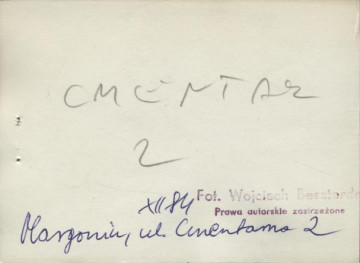 CMENTAR
2
Fot. Wojciech
Prawa autorskie zastrzeżone
XII 84
Margonin, ul. Cmentarna 2